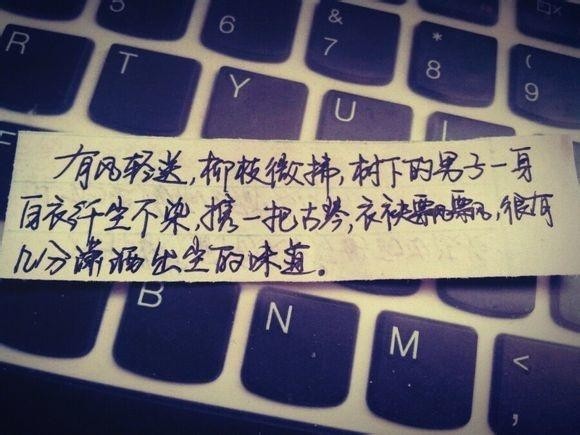 5 6 & 7 * 8 ( 9
R T Y U
有风轻送,柳枝微拂,树下的男子一身
白衣纤尘不染,携一把古琴,衣袂飘飘,很有
几分潇洒出尘的味道.
B N M < ,